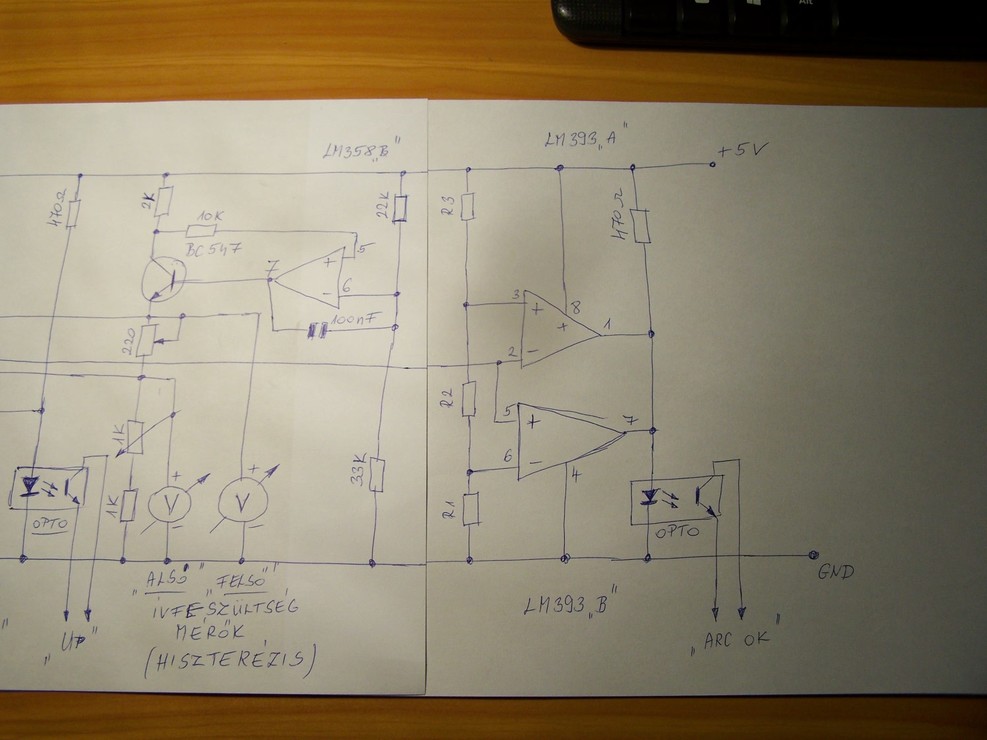 LM358„B"
LM393„A"
+5V
470Ω
2K
10K
BC547
22K
R3
470Ω
7
+
5
-
6
100nF
3
+
8
+
1
2
-
220
R2
5
+
7
6
-
4
1K
1K
+
V
-
+
V
-
33K
R1
OPTO
OPTO
GND
„ALSÓ" „FELSŐ"
ÍVFESZÜLTSÉG
MÉRŐK
(HISZTERÉZIS)
"
„UP"
LM393„B"
„ARC OK"